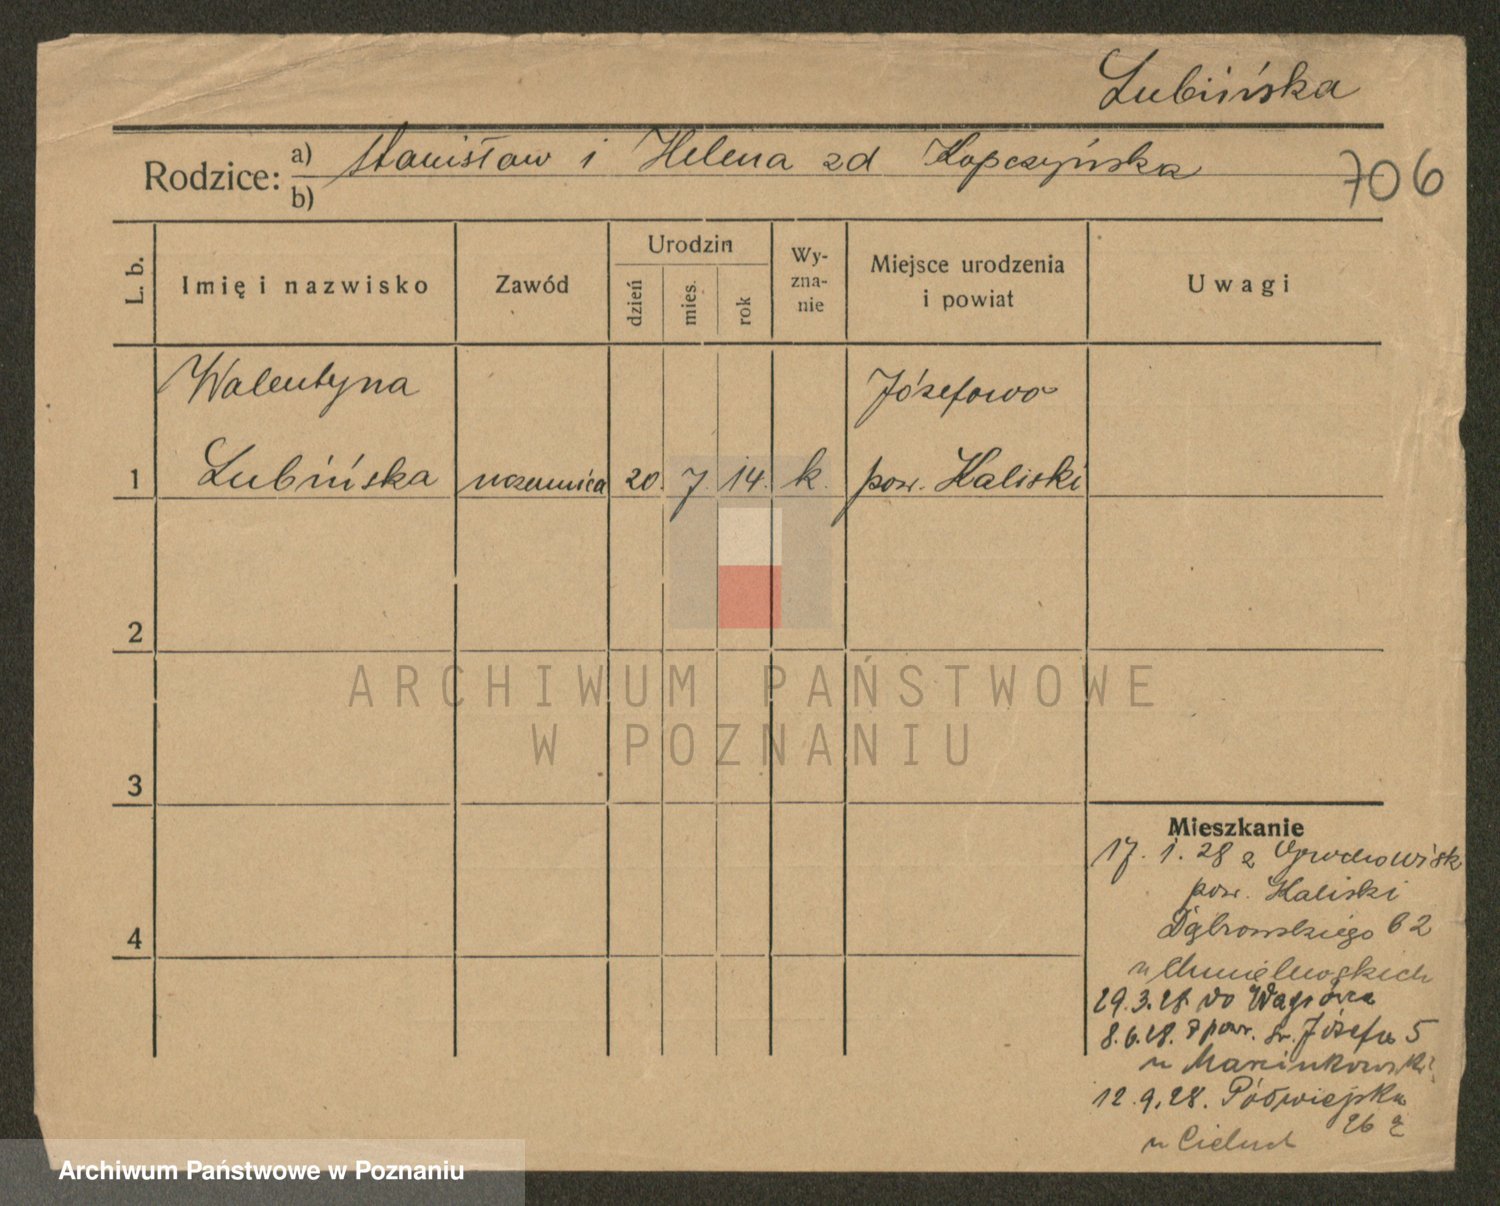 Lubińska
Rodzice: a) Stanisław i Helena zd Kopczyńska
b)
706
L. b.
Imię i nazwisko
Zawód
Urodzin
dzień
mies.
rok
Wy-
zna-
nie
Miejsce urodzenia
i powiat
Uwagi
Walentyna
Józefowo
1 Lubińska uczennica 20. 7. 14. k. pow. Kaliski
2
3
4
Mieszkanie
17. 1. 28 z
pow. Kaliski
Dąbrowskiego 62
u Chmielewskich
29.3.28. do
8.6.28. z pow. św. Józefa 5
u
12.9.28. Półwiejska
26
u
ARCHIWUM PAŃSTWOWE
W POZNANIU
Archiwum Państwowe w Poznaniu